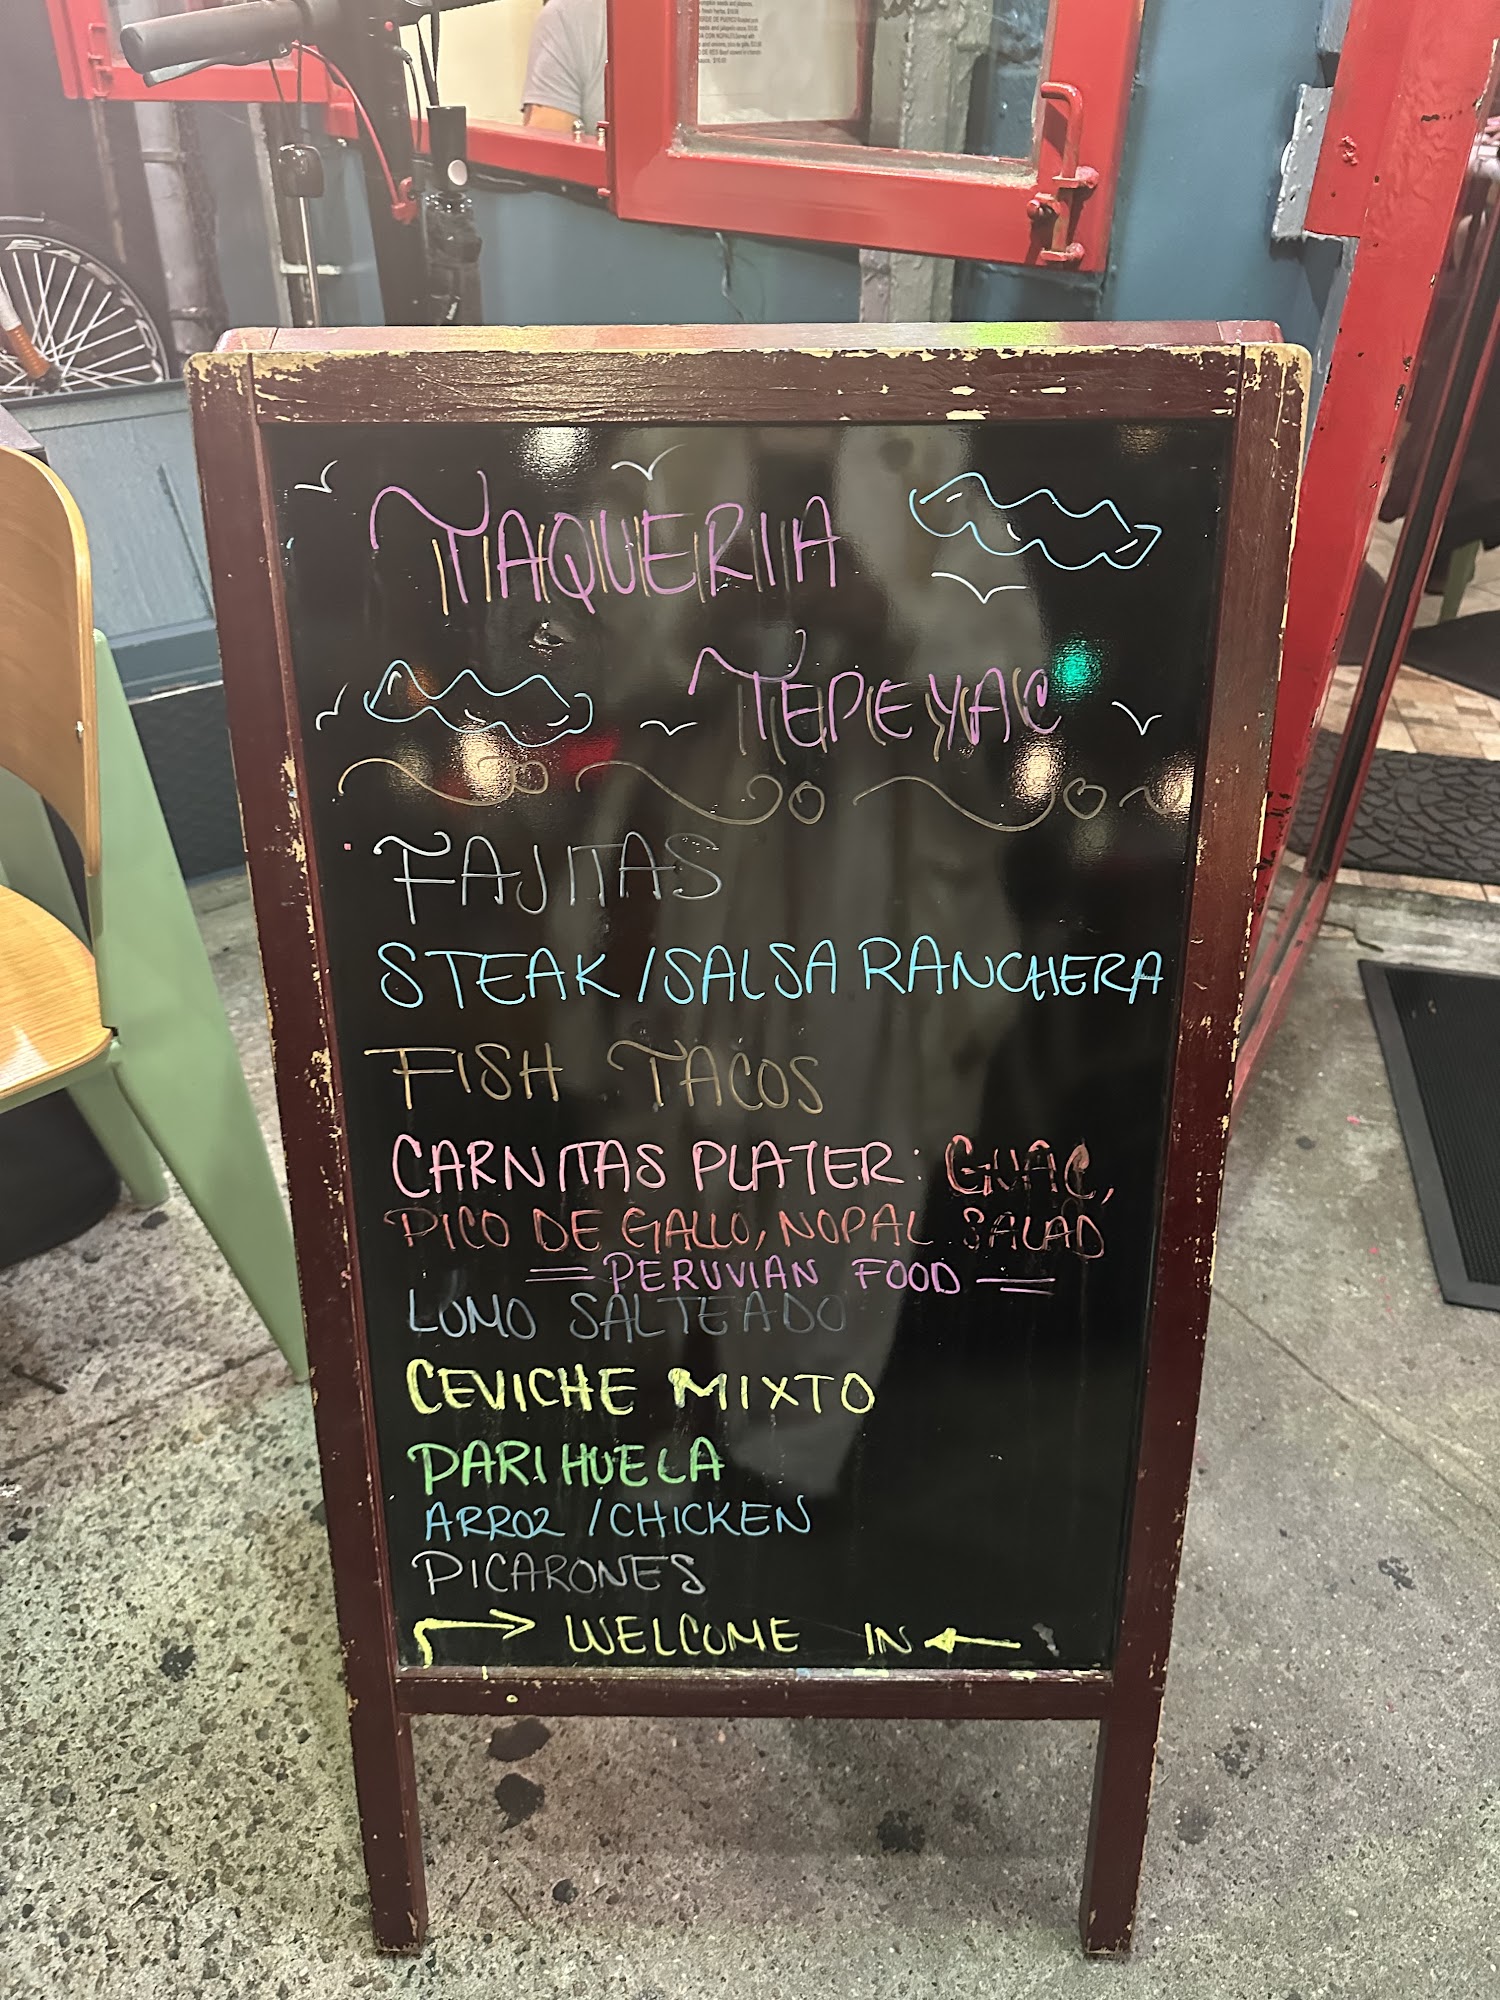 TAQUERIA
TEPEYAC
FAJITAS
STEAK/SALSA RANCHERA
FISH TACOS
CARNITAS PLATER: GUAC,
PICO DE GALLO, NOPAL SALAD
PERUVIAN FOOD
LOMO SALTEADO
CEVICHE MIXTO
PARIHUELA
ARROZ /CHICKEN
PICARONES
WELCOME IN